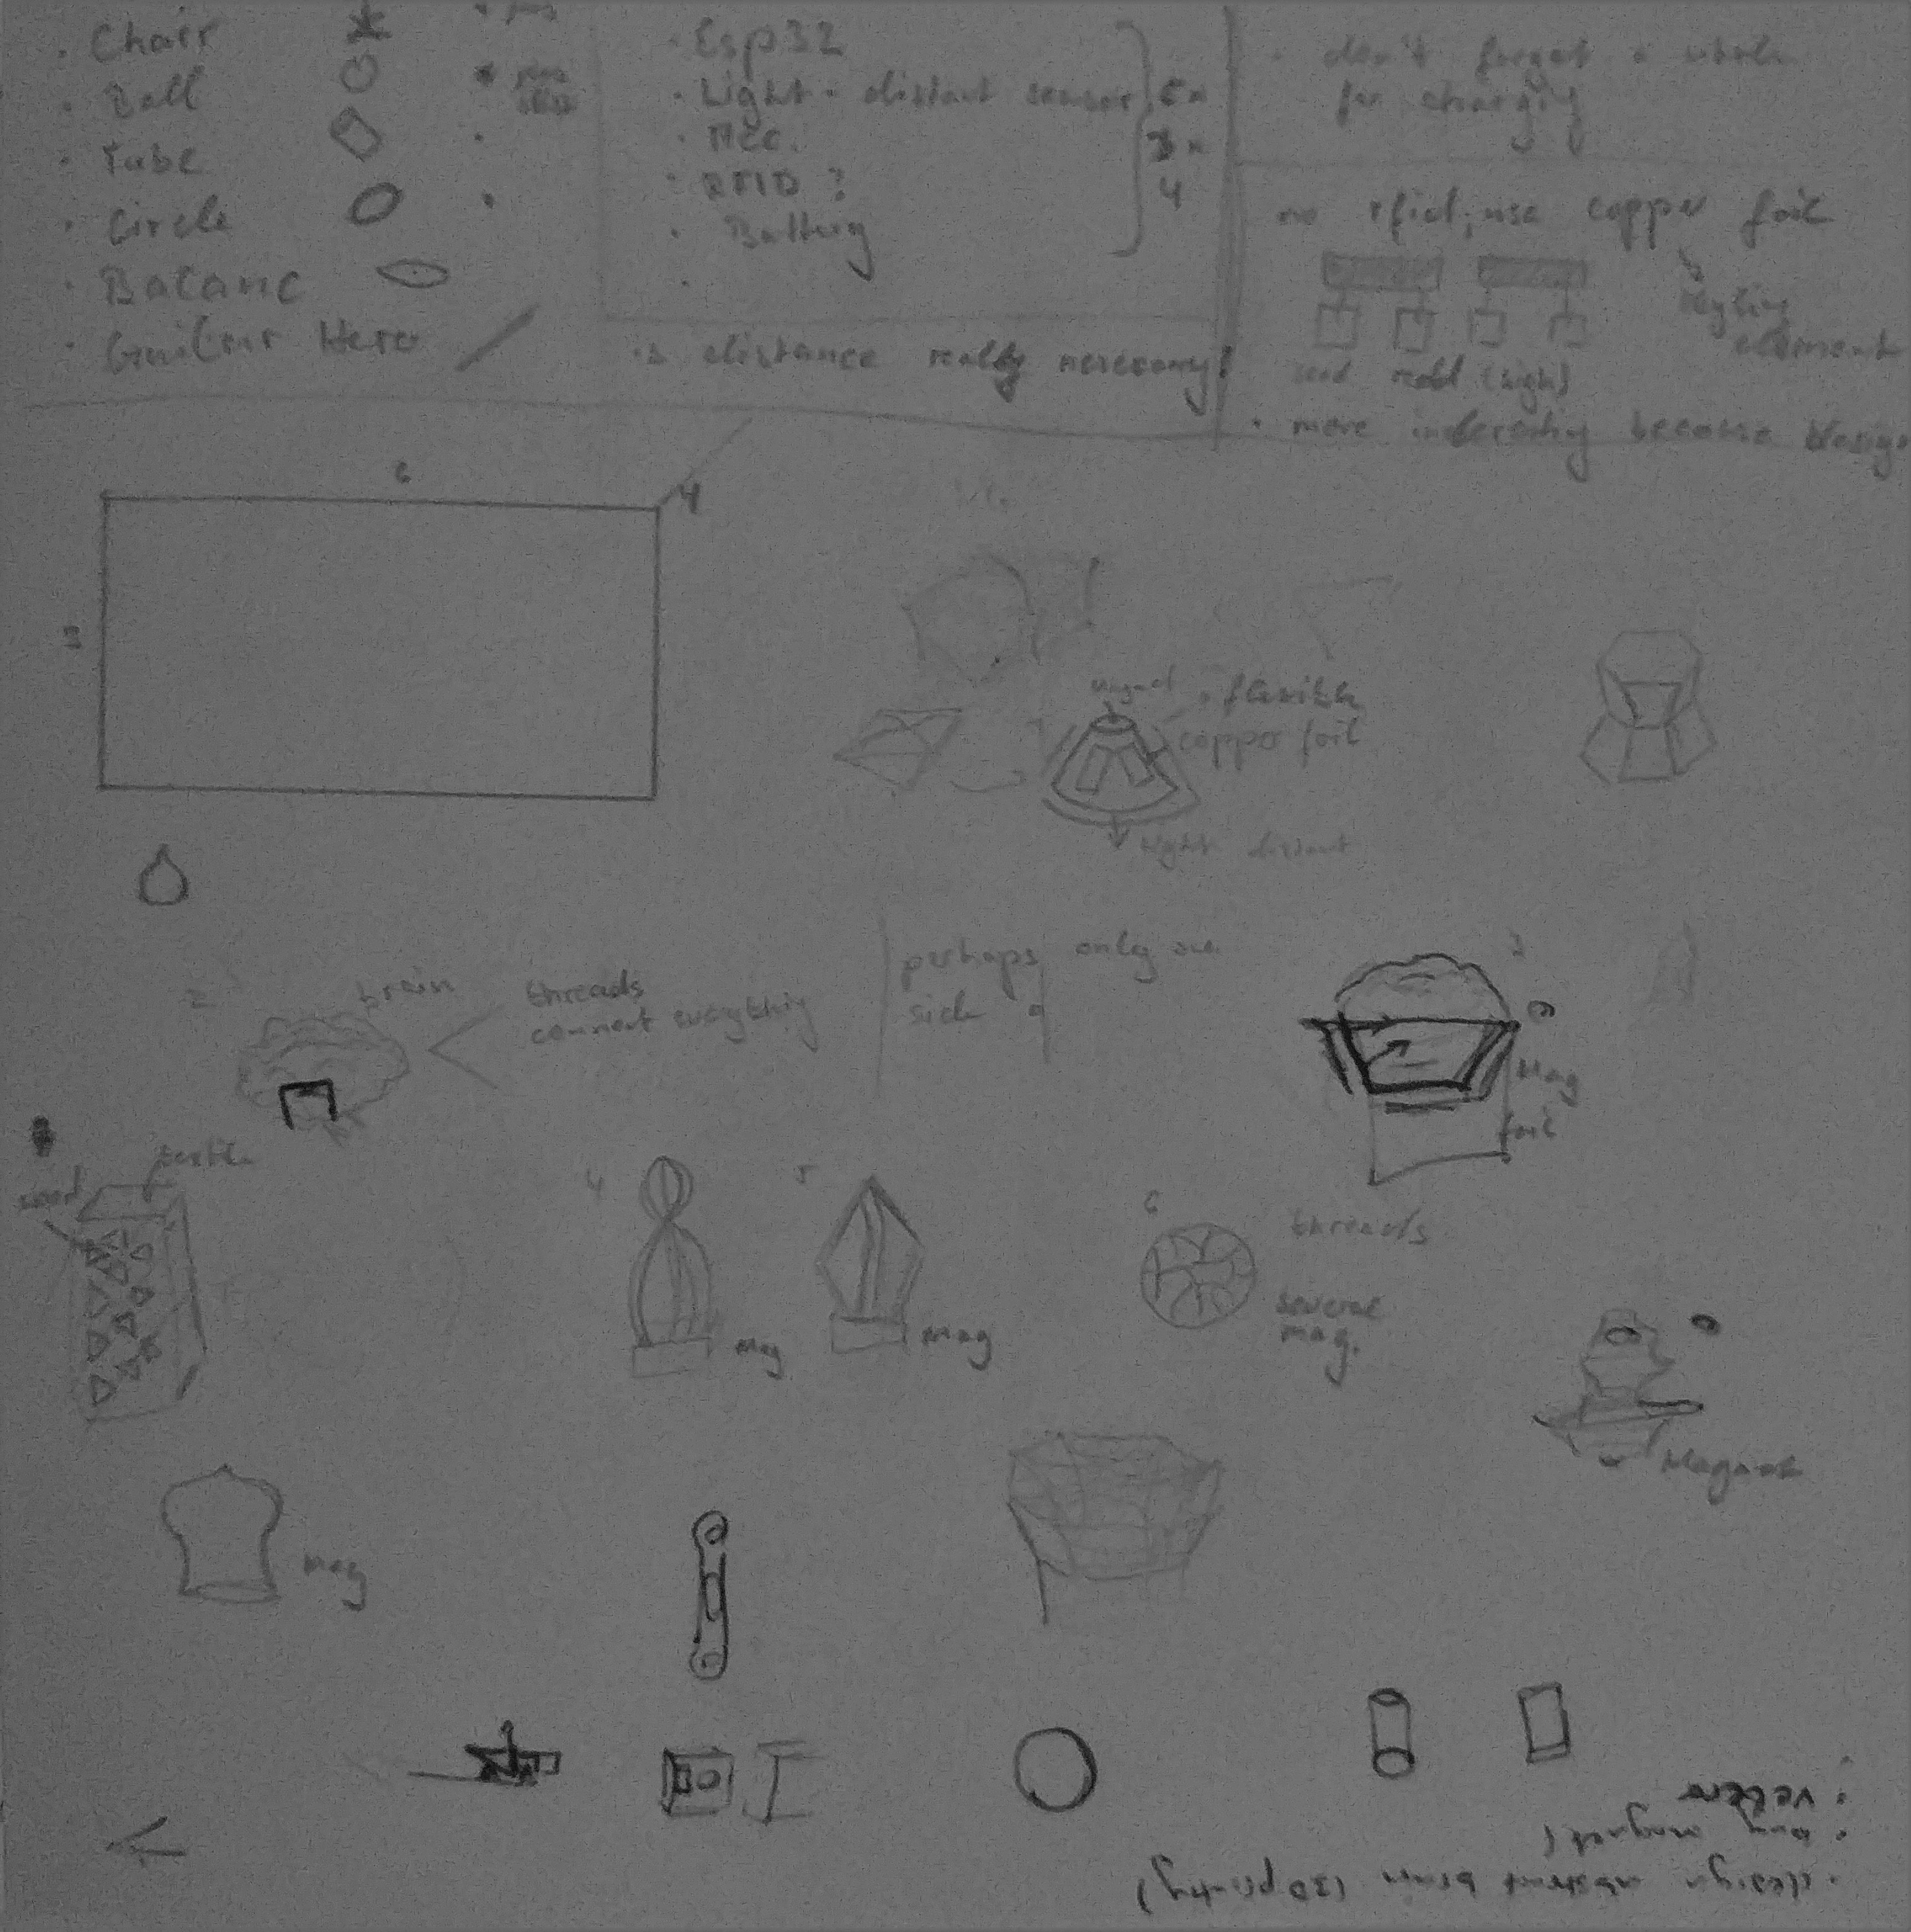 · Chair
· Ball
· Tube
· Circle
· Balanc
· Guitar Hero
· Esp32
· Light · distant sensor
· Acc.
· RFID ?
· Battery
5x
3x
4
is distance really necessary?
· don't forget a whole
for charging
no rfid, use copper foil
element
(high)
· more interesting because design
6
4
3
magnet
· flexible
copper foil
light distant
2
brain
threads
connect everything
perhaps only one
side
3
Mag
foil
textile
4
Mag
5
Mag
6
threads
several
mag.
Magnet
Mag
· velcro
· any magnet (
· design (3D printing)